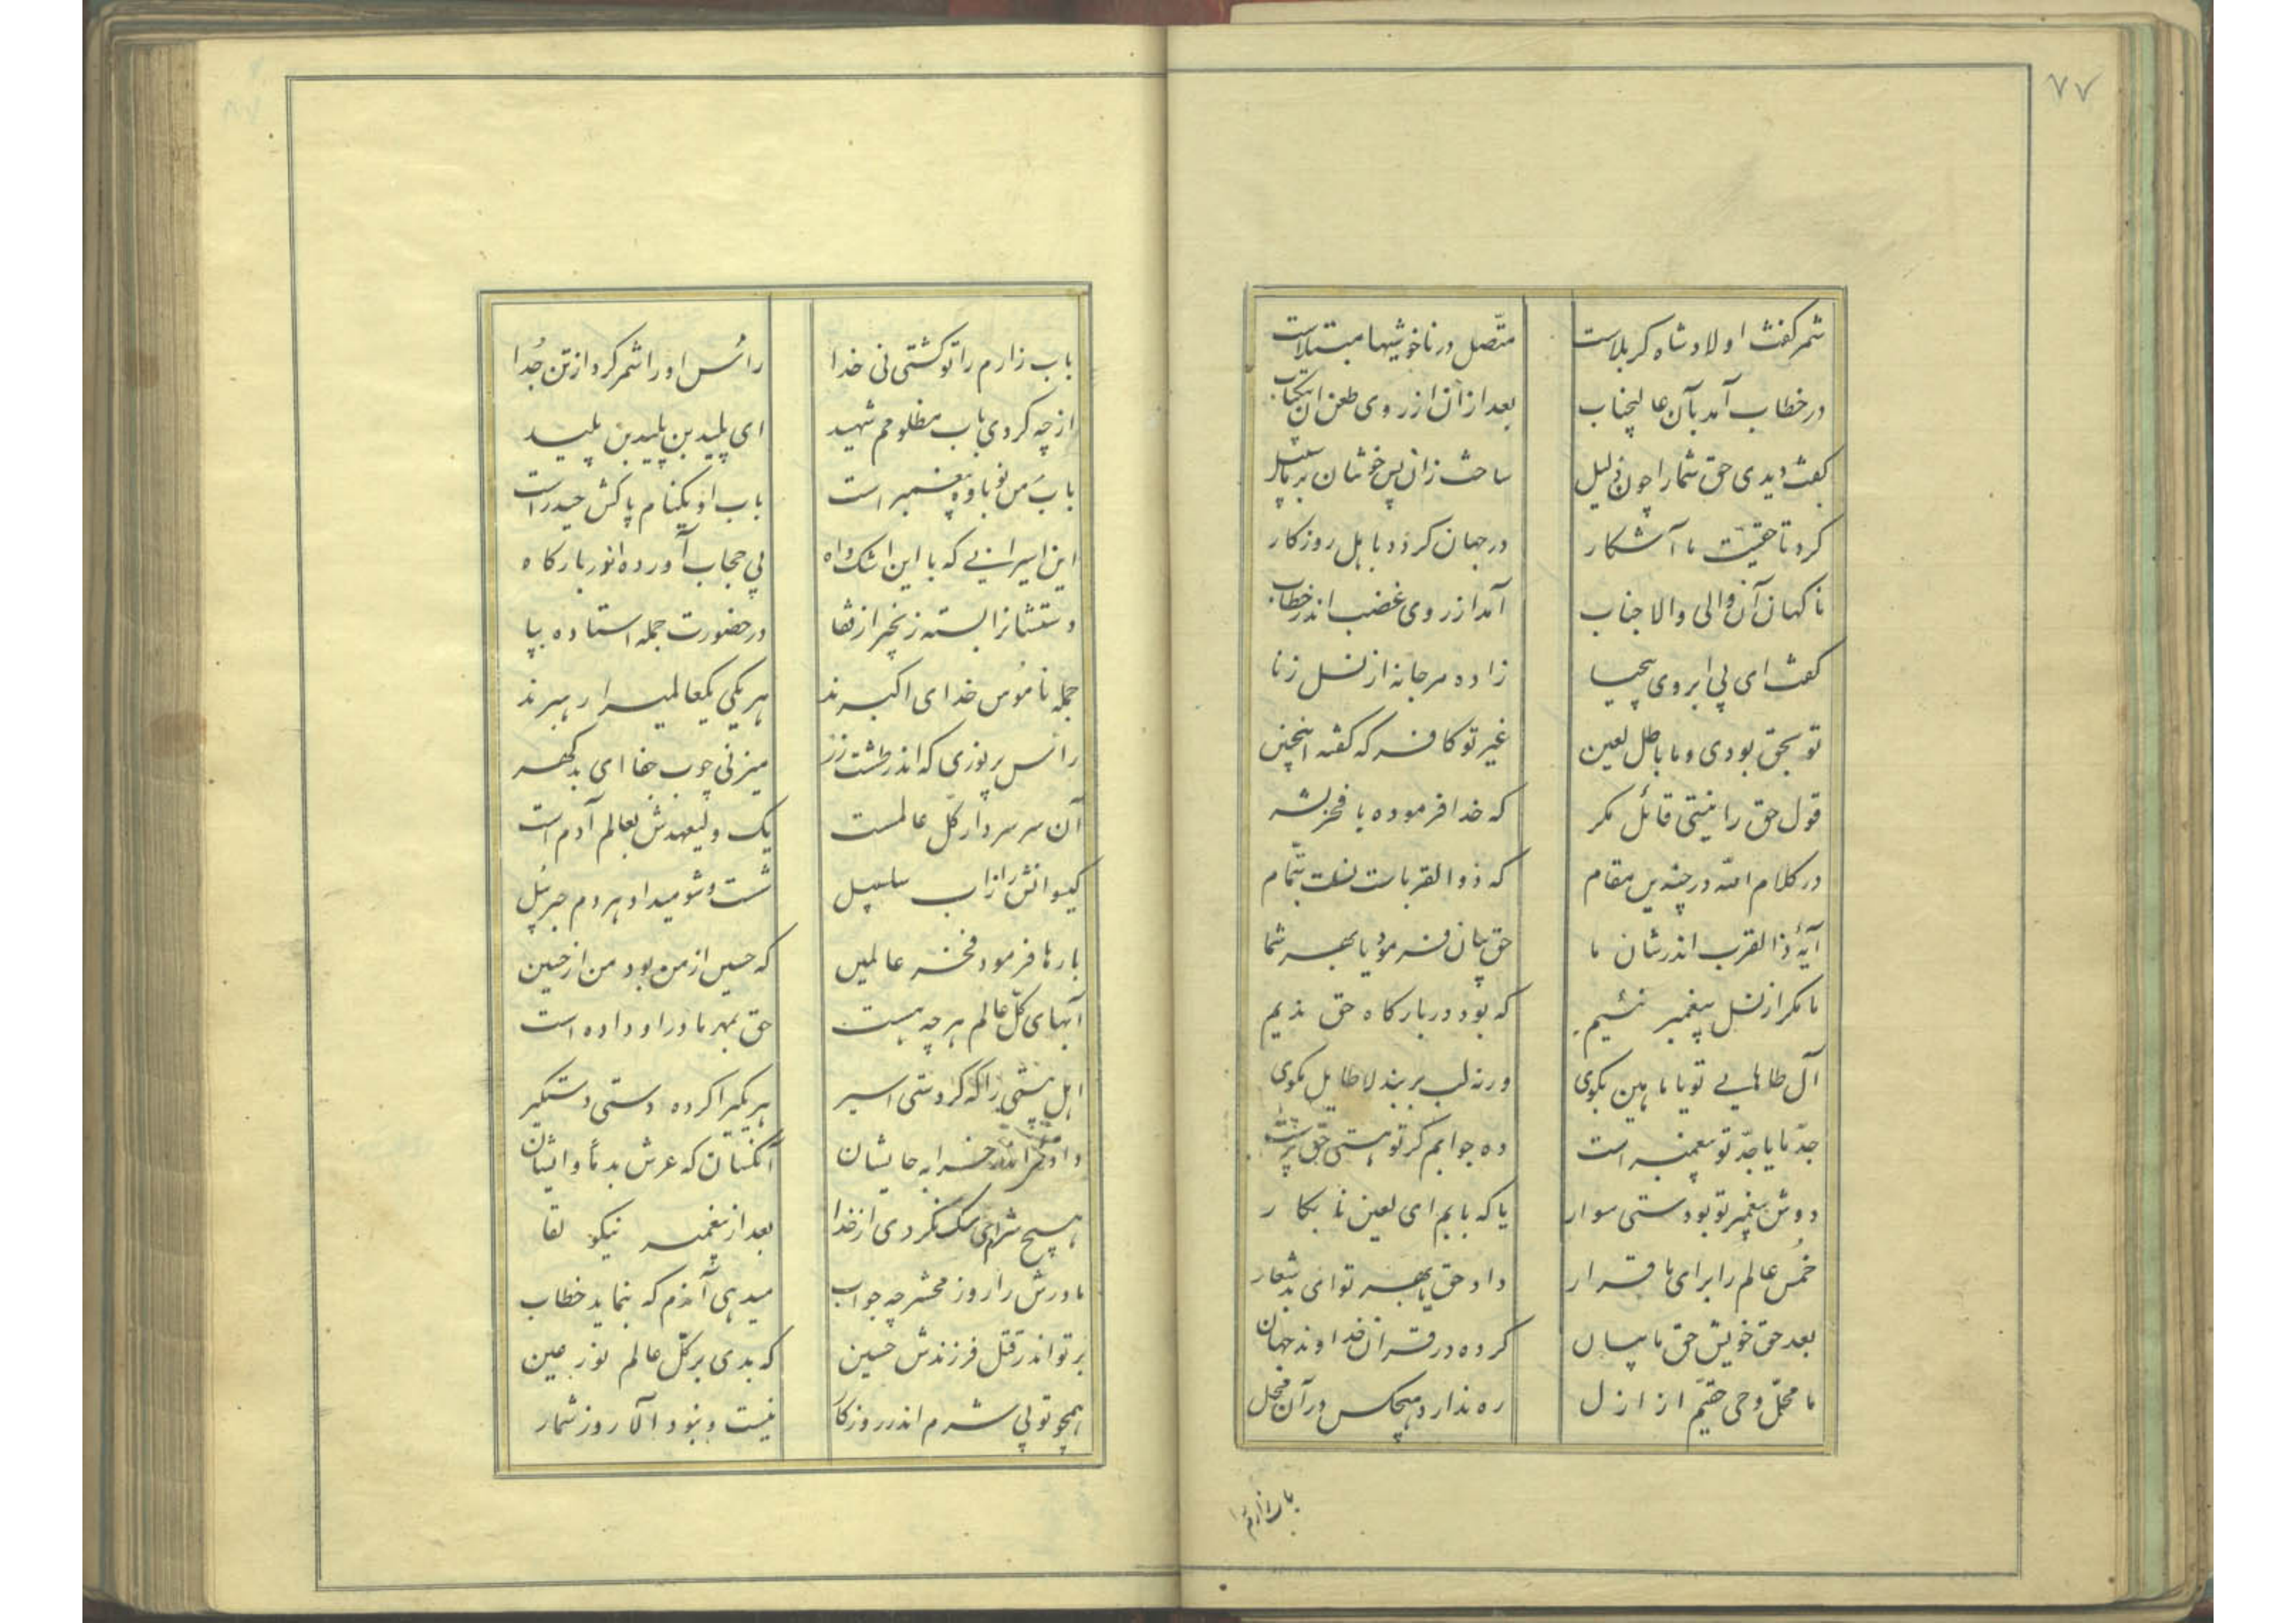 ۷۷
شمر گفت اولاد شاه کربلاست متّصل در ناخوشیها مبتلاست
در خطاب آمد بآن عالیجناب بعد از آن از روی طعن آن
گفت دیدی حق شما را چون ذلیل ساخت زان پس خوشان بر
کرد تا حقیّت ما آشکار در جهان کرد و باهل روزکار
ناکهان آن والی والا جناب آمد از روی غضب اندر خطاب
گفت ای بی ابروی بیحیا زاده مرجانه از نسل زنا
تو بحق بودی و ما باطل لعین غیر تو کافر که گفته اینچنین
قول حق را نیستی قائل مکر که خدا فرموده با فخر بشر
در کلام الله در چندین مقام که ذوالقربا است بتمام
آیهٔ ذالقرب اندر شان ما حق بیان فرمود یا بهر شما
ما مکر از نسل پیغمبر نئیم که بود در بارکاه حق ندیم
آل طاهایی تو یا ما هین بکوی ورنه لب بربند لاطایل مکوی
جدّ ما یا جدّ تو پیغمبر است ده جوابم کر تو هستی حق پرست
دوش پیغمبر تو بودستی سوار یا که بابم ای لعین نابکار
خُمس عالم را برای ما قرار داد حق یا بهر تو ای بد شعار
بعد حق خویش حق ما بیان کرده در قران خداوند جهان
ما محلّ وحی حقیّم از ازل ره ندارد هیچکس در آن محل
باب زارم را
باب زارم را تو کشتی نی خدا رائس او را شمر کرد از تن جُدا
از چه کردی باب مظلومم شهید ای پلید بن پلید بن پلید
بابَ من نوباوه پیغمبر است باب او یکنام پاکش حیدر است
این اسیرانی که با این اشک و اه بی حجاب آورده اندر بارکاه
دستشانرا بسته زنجیر از قفا در حضورت جمله استاده بپا
جمله نامُوس خدای اکبرند هر یکی یکعالمیرا رهبرند
رائس پر نوری که اندر طشت زر میزنی چوب جفا ای بد کهر
آن سر سردار کلّ عالمست یک ولیعهدش بعالم آدم است
کیسوانش را ز اب سلسبیل شست و شو میداد هر دم جبرئیل
بارها فرمود فخر عالمین که حسین از من بود من از حسین
آبهای کلّ عالم هر چه هست حق بمهر مادر او داده است
اهل بیتی را که کردستی اسیر هر یکیرا کرده دستی دستکیر
داده اندر خرابه جایشان آنکسان که عرش بد ماوایشان
هیچ شرم ای سک نکردی از خدا بعد از پیغمبر نیکو لقا
مادرش را روز محشر چه جواب میدهی آندم که بنماید خطاب
بر تو اندر قتل فرزندش حسین که بدی بر کلّ عالم نور عین
همچو تو بی شرم اندر روزکار نیست و نبود الا روز شمار